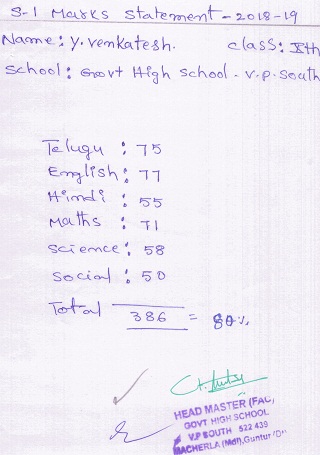 S-1 Marks statement - 2018-19
Name: Y. venkatesh. class: Xth
school: Govt High school - V.P. South
Telugu : 75
English : 77
Hindi : 55
Maths : 71
science : 58
social : 50
Total 386 = 80%
HEAD MASTER (FAC,
GOVT HIGH SCHOOL
V.P SOUTH 522 439
MACHERLA (Mdl), Guntur "D"